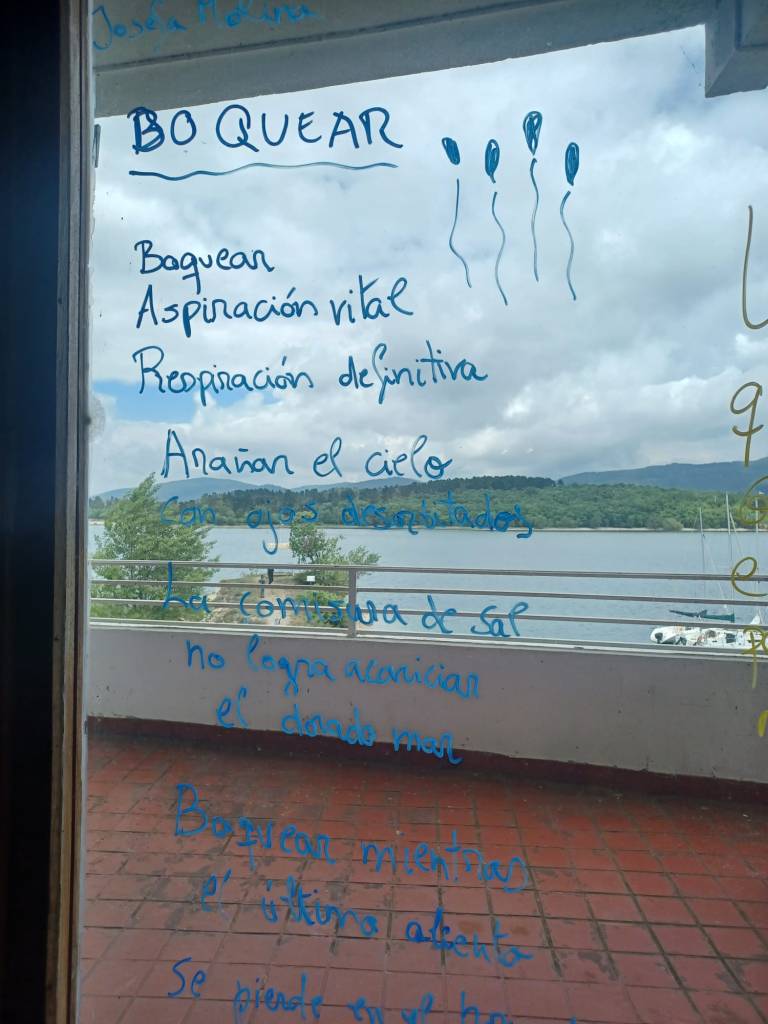 Josefa Molina
BOQUEAR
Boquear
Aspiración vital
Respiración definitiva
Arañar el cielo
con ojos desorbitados
La comisura de sal
no logra acariciar
el dorado mar
Boquear mientras
el último aliento
se pierde en el